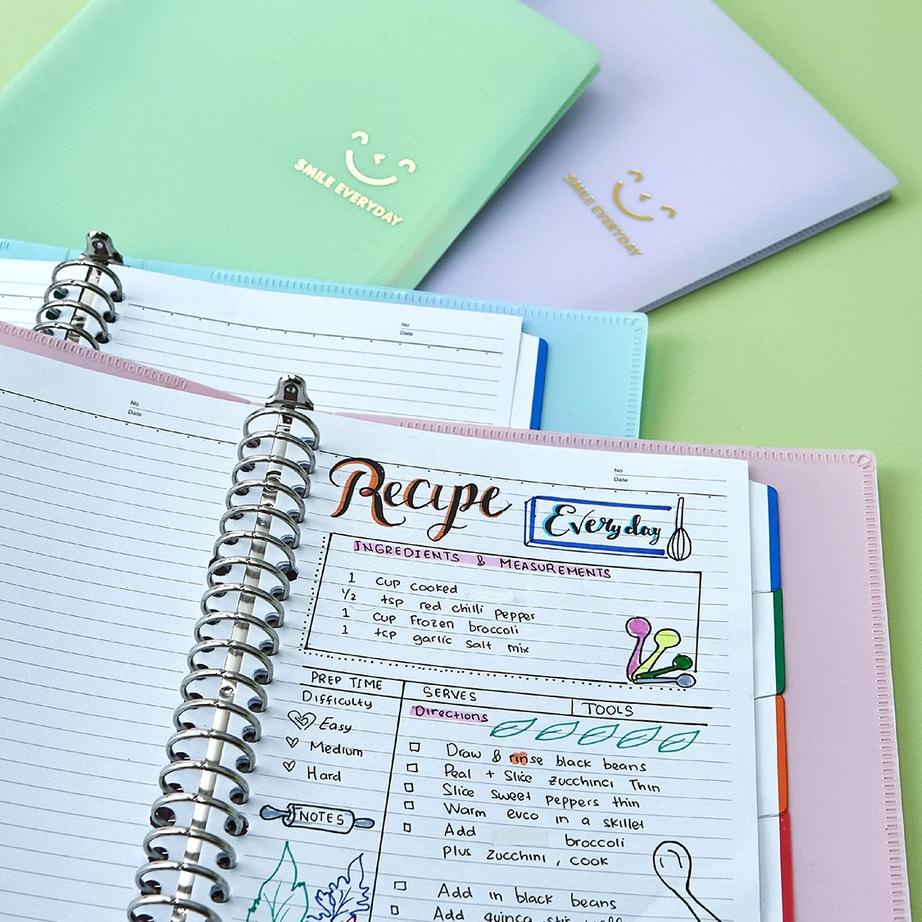 SMILE EVERYDAY
SMILE EVERYDAY
No
Date
No
Date
No
Date
Recipe
Everyday
INGREDIENTS & MEASUREMENTS
1 cup cooked
1/2 tsp red chilli pepper
1 cup Frozen broccoli
1 tcp garlic salt mix
PREP TIME
Difficulty
Easy
Medium
Hard
NOTES
SERVES
TOOLS
Directions
Draw & rinse black beans
Peal + Slice zucchinci Thin
Slice sweet peppers thin
Warm evco in a skillet
Add broccoli
plus zucchini, cook
Add in black beans
Add quinca stir